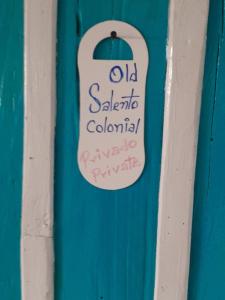 Old
Salento
Colonial
Privado
Private